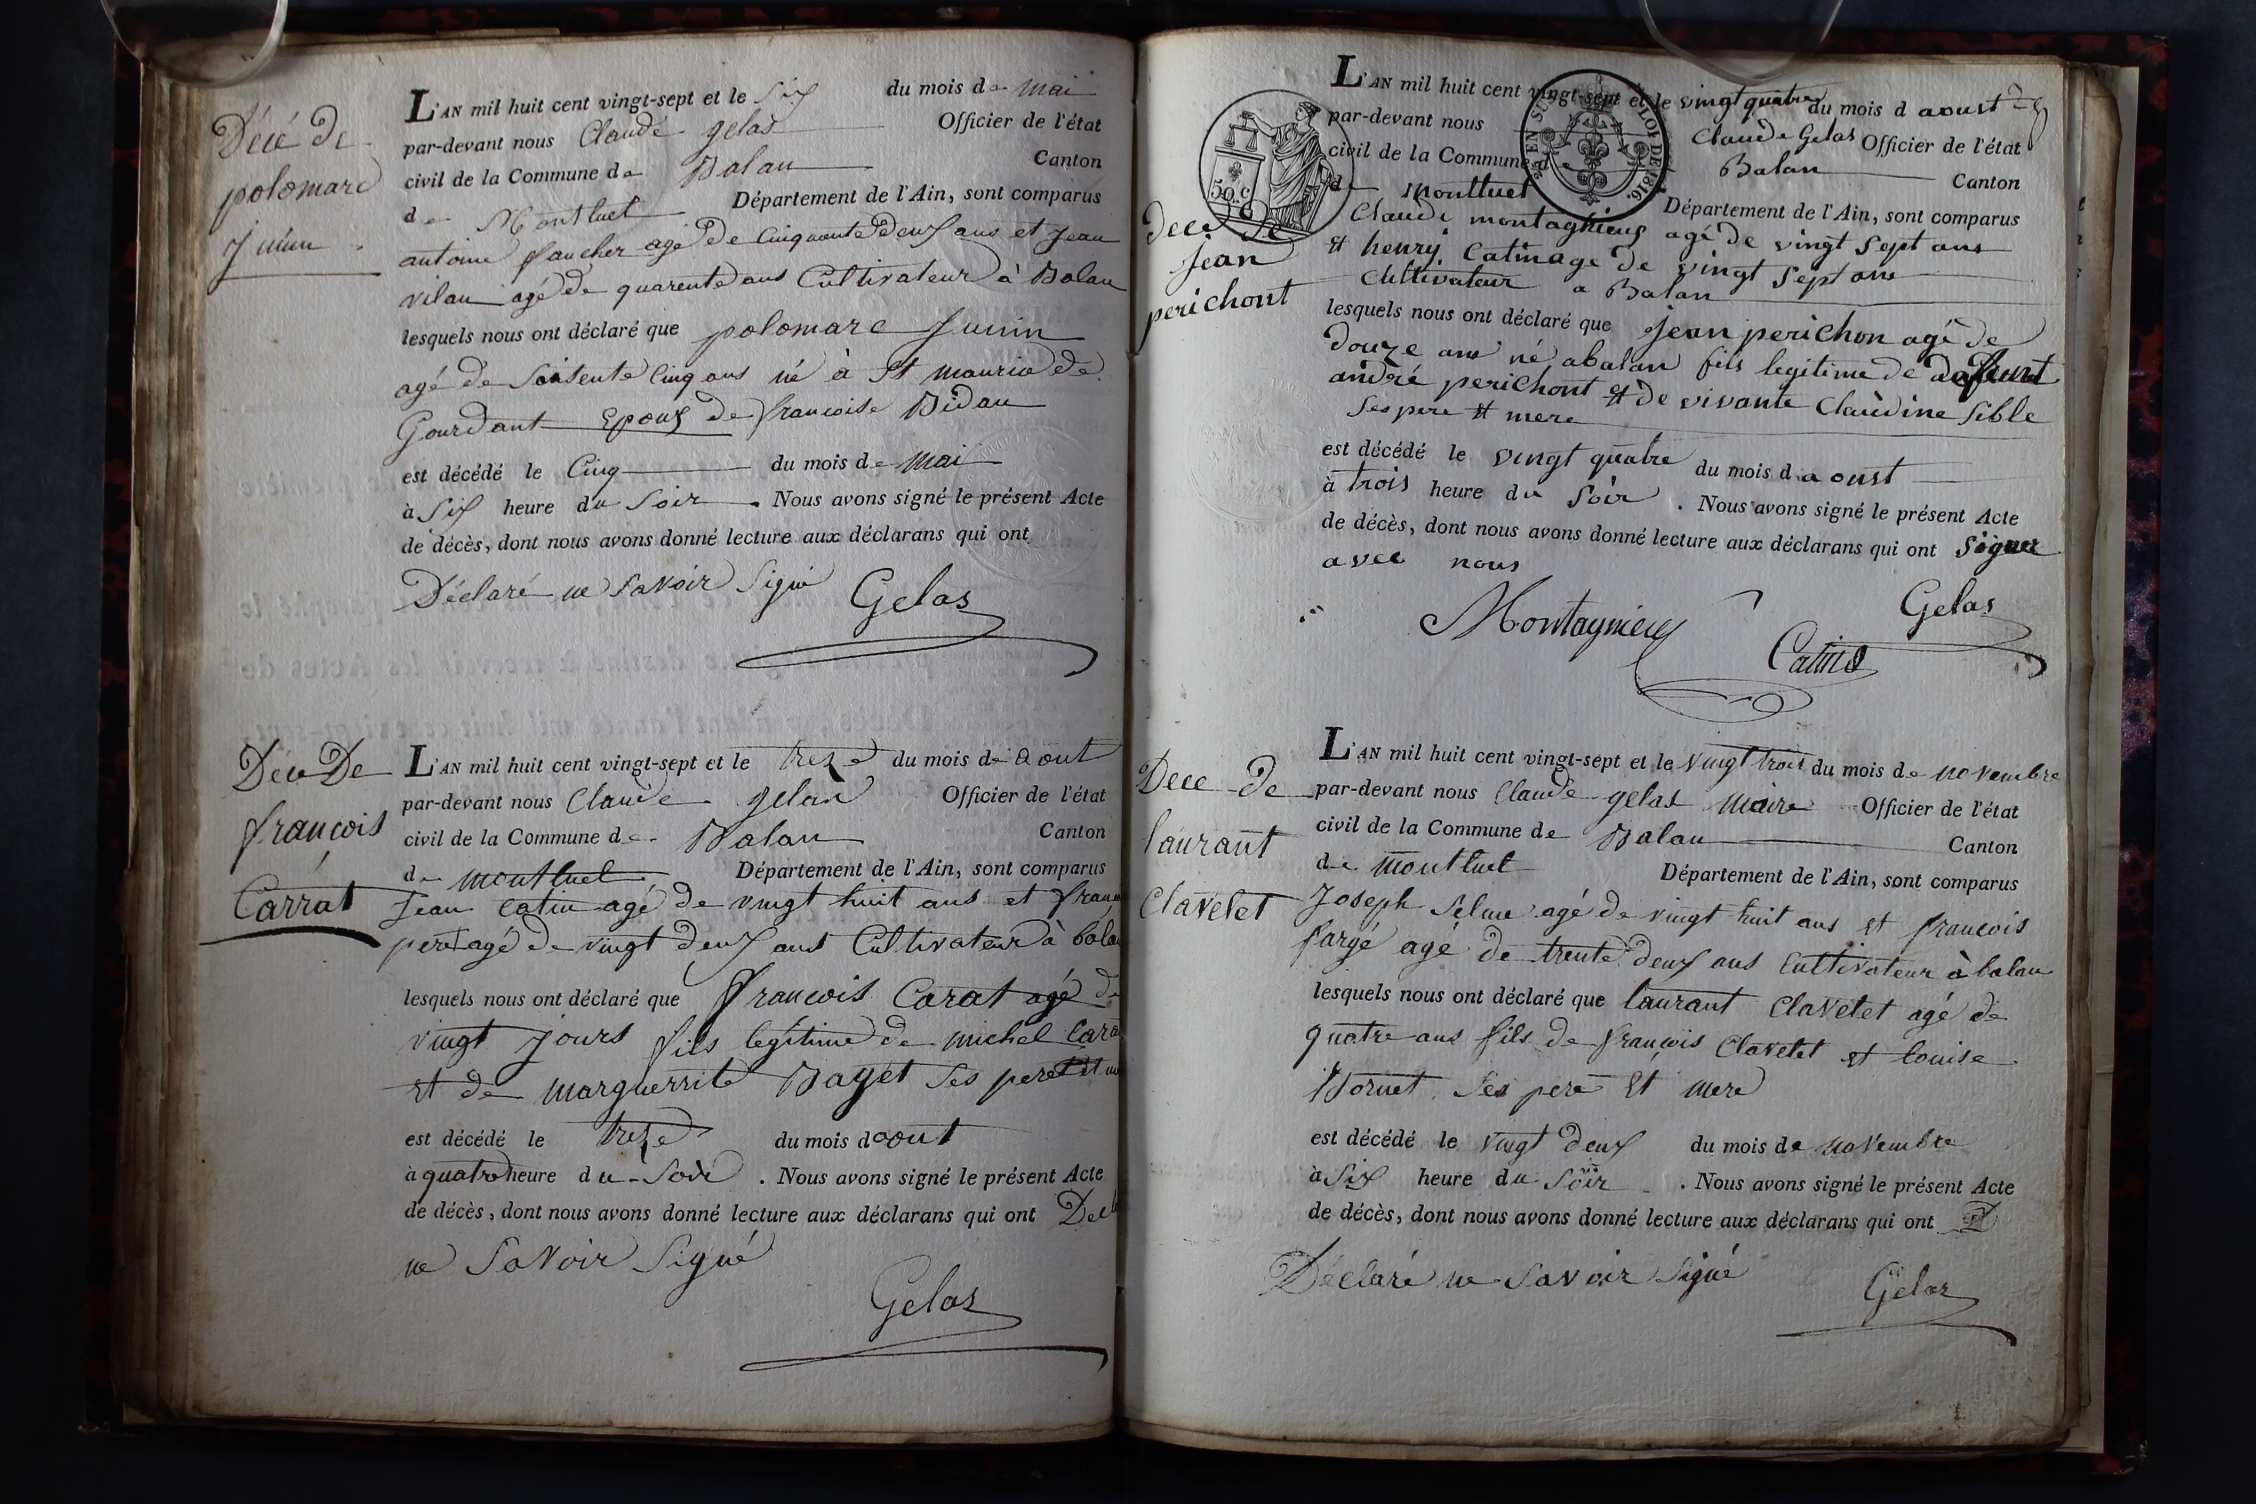 Décé de
polomard
Juuin
L'AN mil huit cent vingt-sept et le Six du mois de mai
par-devant nous Claude gelas Officier de l'état
civil de la Commune de Balan Canton
de Montluel Département de l'Ain, sont comparus
antoine faucher agé de Cinquante deux ans et Jean
vilan agé de quarente ans Cultivateur à Balan
lesquels nous ont déclaré que polomare Juuin
agé de Soixsente Cinq ans né à St maurice de
Gourdant Epoux de francoise Bidau
est décédé le Cinq du mois de mai
à Six heure du Soir. Nous avons signé le présent Acte
de décès, dont nous avons donné lecture aux déclarans qui ont
Déclaré ne Savoir Signé Gelas
Déce De
francois
Carrat
L'AN mil huit cent vingt-sept et le treze du mois de aout
par-devant nous Claude gelas Officier de l'état
civil de la Commune de Balan Canton
de montluel Département de l'Ain, sont comparus
Jean catin agé de vingt huit ans et
peret agé de vingt deux ans Cultivateur à bala
lesquels nous ont déclaré que francois Carat agé de
vingt jours fils legitime de michel Cara
et de marguerrite Bayet Ses pere et
est décédé le treze du mois d aout
à quatre heure du Soir. Nous avons signé le présent Acte
de décès, dont nous avons donné lecture aux déclarans qui ont Decl
ne Savoir Signé
Gelas
50 c
EN SUS LOI DE 1816.
Dece de
Jean
perichont
L'AN mil huit cent vingt-sept et le vingt quatre du mois d aoust
par-devant nous Claude Gelas Officier de l'état
civil de la Commune d Balan Canton
de Montluel Département de l'Ain, sont comparus
Claude montagnieux agé de vingt Sept ans
et henry Catin age de vingt Sept ans
Cultivateur a Balan
lesquels nous ont déclaré que Jean perichon agé de
douze ans né abalan fils legitime de defunt
andré perichont et de vivante Claudine Sible
Ses pere et mere
est décédé le vingt quatre du mois d aoust
à trois heure du Soir. Nous avons signé le présent Acte
de décès, dont nous avons donné lecture aux déclarans qui ont Signer
avec nous
Montagnieux Catin Gelas
Dece de
laurant
Clavelet
L'AN mil huit cent vingt-sept et le vingt trois du mois de novembre
par-devant nous Claude gelas maire Officier de l'état
civil de la Commune de Balan Canton
de montluel Département de l'Ain, sont comparus
Joseph Selme agé de vingt huit ans et francois
fargé agé de trente deux ans Cultivateur à balan
lesquels nous ont déclaré que laurant Clavelet agé de
quatre ans fils de françois Clavelet et louise
Bornet Ses pere Et mere
est décédé le vingt deux du mois de novembre
à Six heure du Soir. Nous avons signé le présent Acte
de décès, dont nous avons donné lecture aux déclarans qui ont
Déclaré ne Savoir Signé Gelas